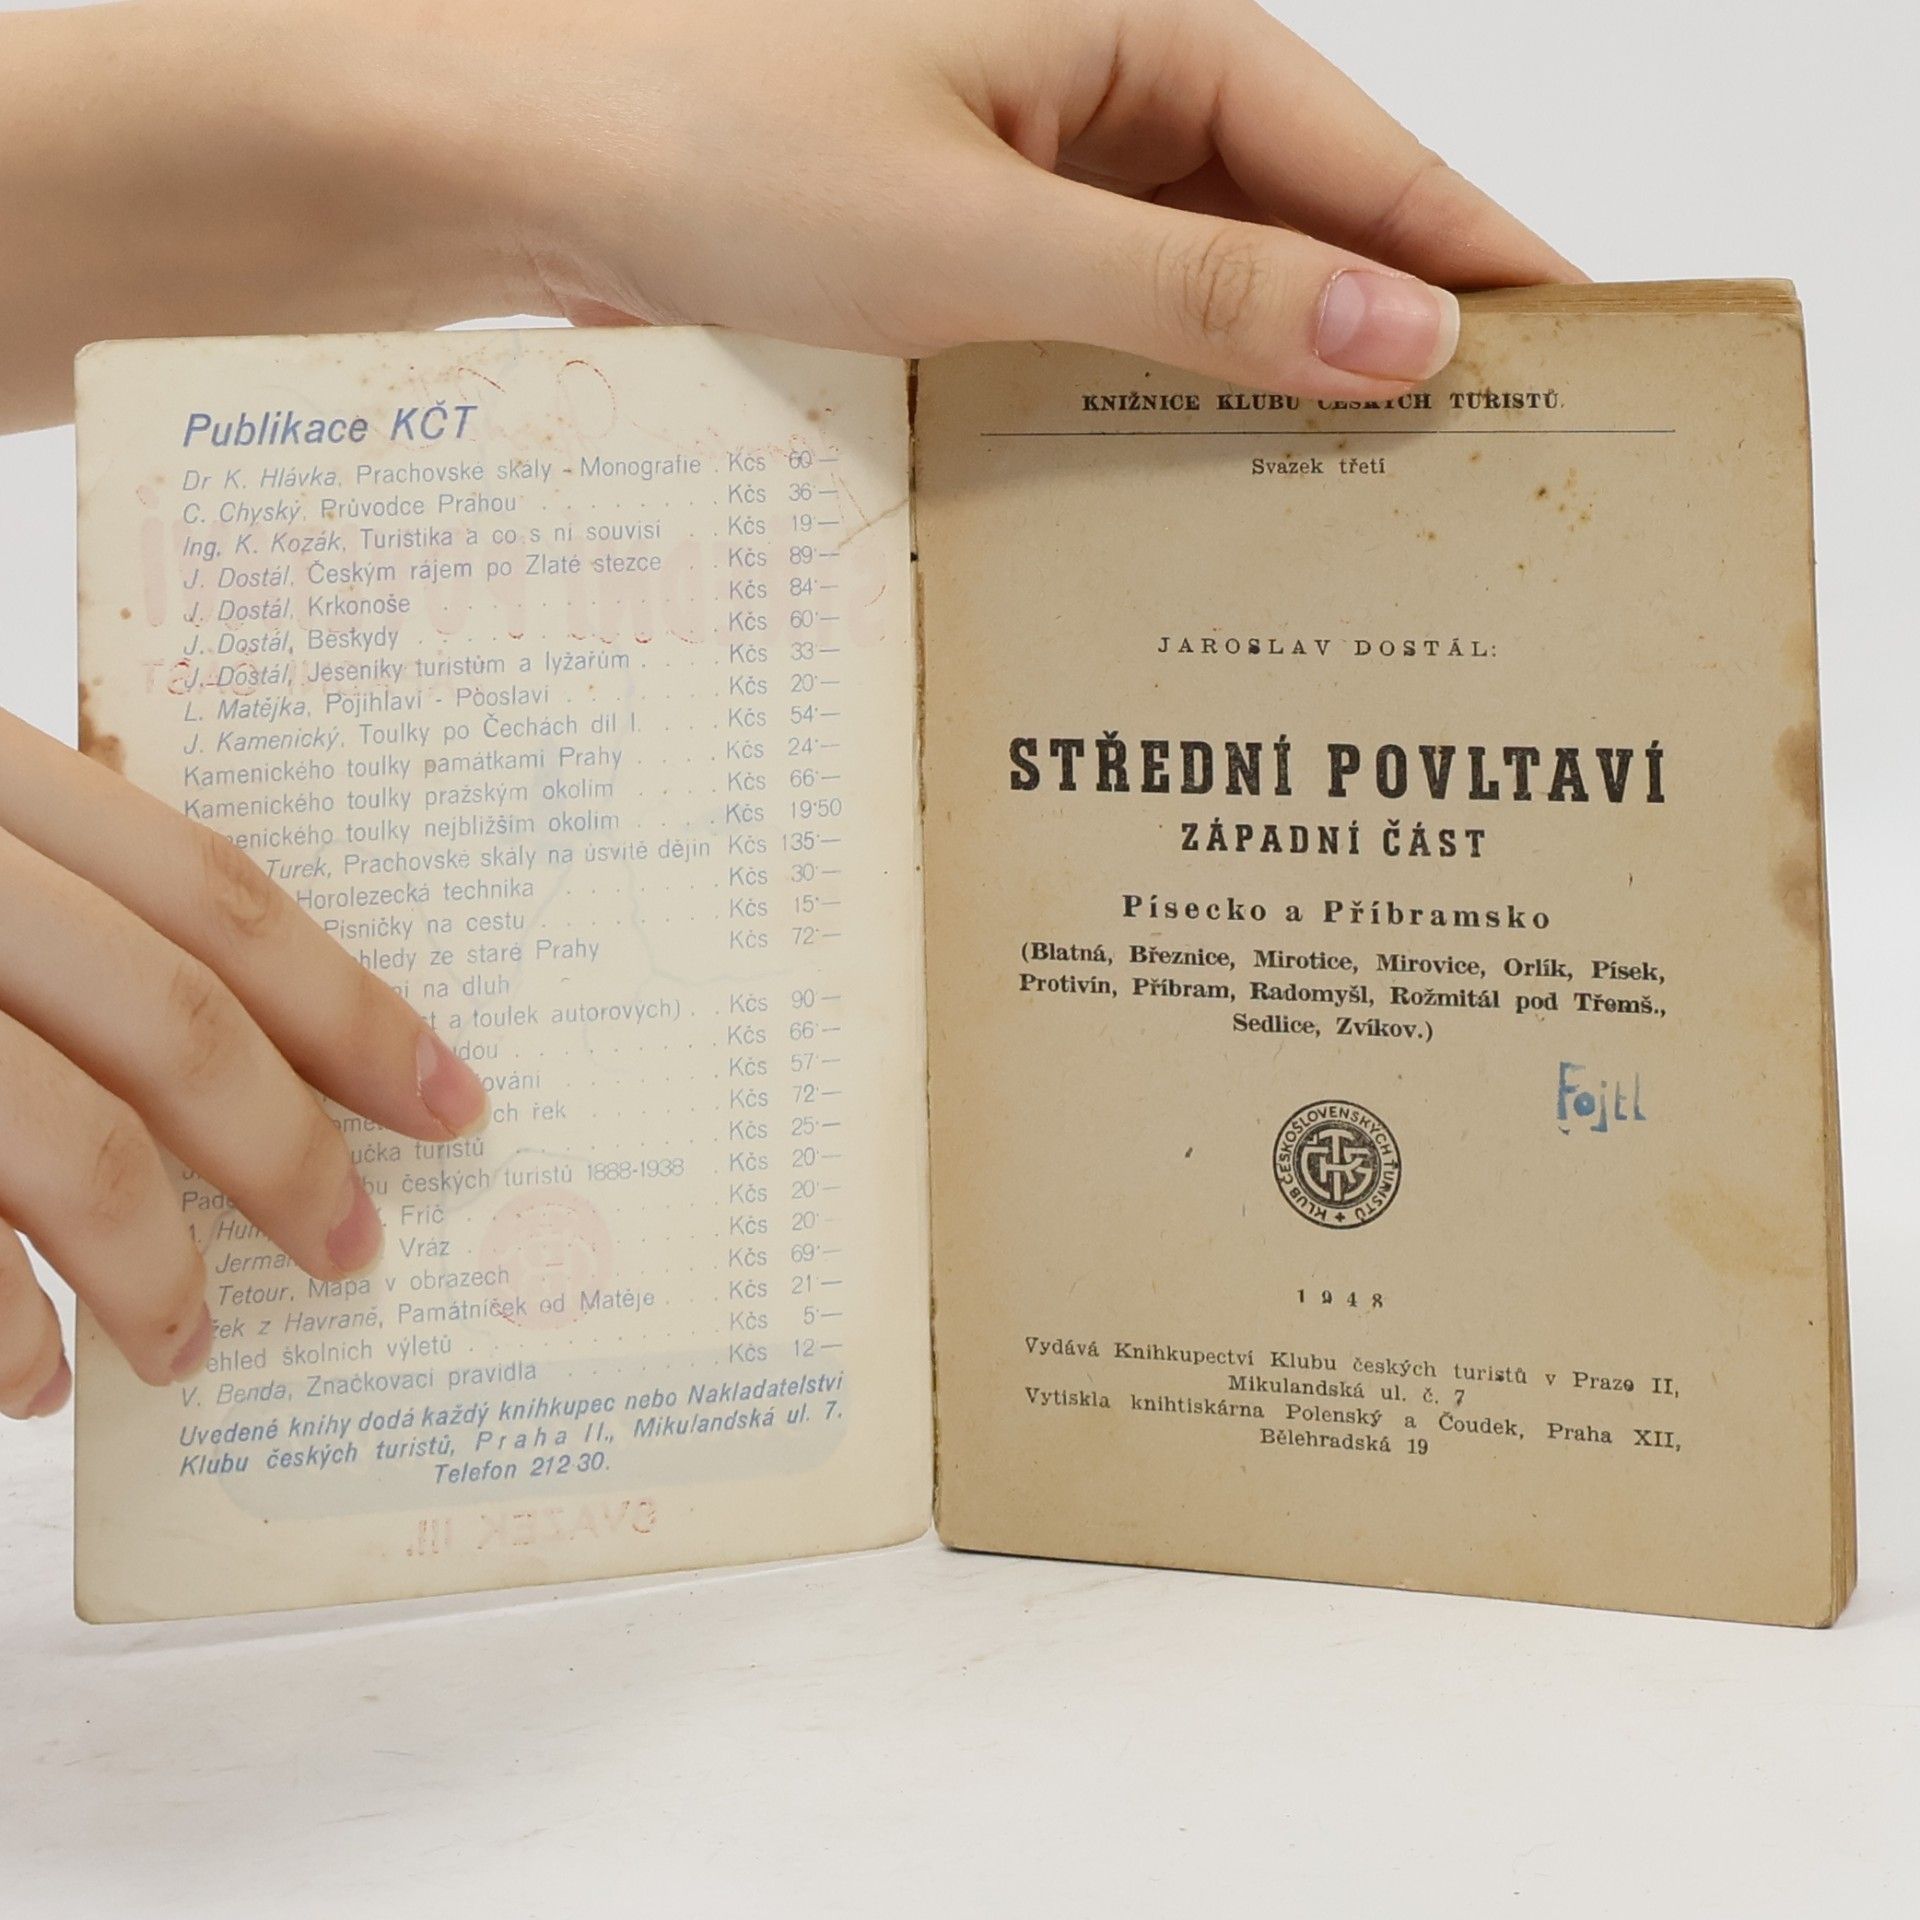 Publikace KČT
Dr K. Hlávka, Prachovské skály - Monografie . Kčs 60·—
C. Chyský, Průvodce Prahou . . . . . . . Kčs 36·—
Ing. K. Kozák, Turistika a co s ní souvisí . . Kčs 19·—
J. Dostál, Českým rájem po Zlaté stezce . . Kčs 89·—
J. Dostál, Krkonoše . . . . . . . . . . Kčs 84·—
J. Dostál, Beskydy . . . . . . . . . . Kčs 60·—
J. Dostál, Jeseníky turistům a lyžařům . . . . Kčs 33·—
L. Matějka, Pojihlaví - Pooslaví . . . . . . Kčs 20·—
J. Kamenický, Toulky po Čechách díl I. . . . Kčs 54·—
Kamenického toulky památkami Prahy . . . . Kčs 24·—
Kamenického toulky pražským okolím . . . . Kčs 66·—
enického toulky nejbližším okolím . . . . Kčs 19·50
Turek, Prachovské skály na úsvitě dějin Kčs 135·—
Horolezecká technika . . . . . . Kčs 30·—
Písničky na cestu . . . . . . . Kčs 15·—
hledy ze staré Prahy Kčs 72·—
na dluh
a toulek autorových) . . Kčs 90·—
udou . . . . . . . . Kčs 66·—
ování . . . . . . Kčs 57·—
ch řek . . . . . Kčs 72·—
učka turistů . . . . . . . . Kčs 25·—
bu českých turistů 1888-1938 . Kčs 20·—
Frič . . . . . . . . . Kčs 20·—
Vráz . . . . . . . . . Kčs 20·—
Tetour, Mapa v obrazech . . . . . . . Kčs 69·—
žek z Havraně, Památníček od Matěje . . . Kčs 21·—
ehled školních výletů . . . . . . . . . Kčs 5·—
V. Benda, Značkovací pravidla . . . . . . Kčs 12·—
Uvedené knihy dodá každý knihkupec nebo Nakladatelství
Klubu českých turistů, Praha II., Mikulandská ul. 7.
Telefon 212-30.
KNIŽNICE KLUBU ČESKÝCH TURISTŮ.
Svazek třetí
JAROSLAV DOSTÁL:
STŘEDNÍ POVLTAVÍ
ZÁPADNÍ ČÁST
Písecko a Příbramsko
(Blatná, Březnice, Mirotice, Mirovice, Orlík, Písek,
Protivín, Příbram, Radomyšl, Rožmitál pod Třemš.,
Sedlice, Zvíkov.)
Fojtl
KLUB ČESKOSLOVENSKÝCH TURISTŮ
KČT
1948
Vydává Knihkupectví Klubu českých turistů v Praze II,
Mikulandská ul. č. 7
Vytiskla knihtiskárna Polenský a Čoudek, Praha XII,
Bělehradská 19